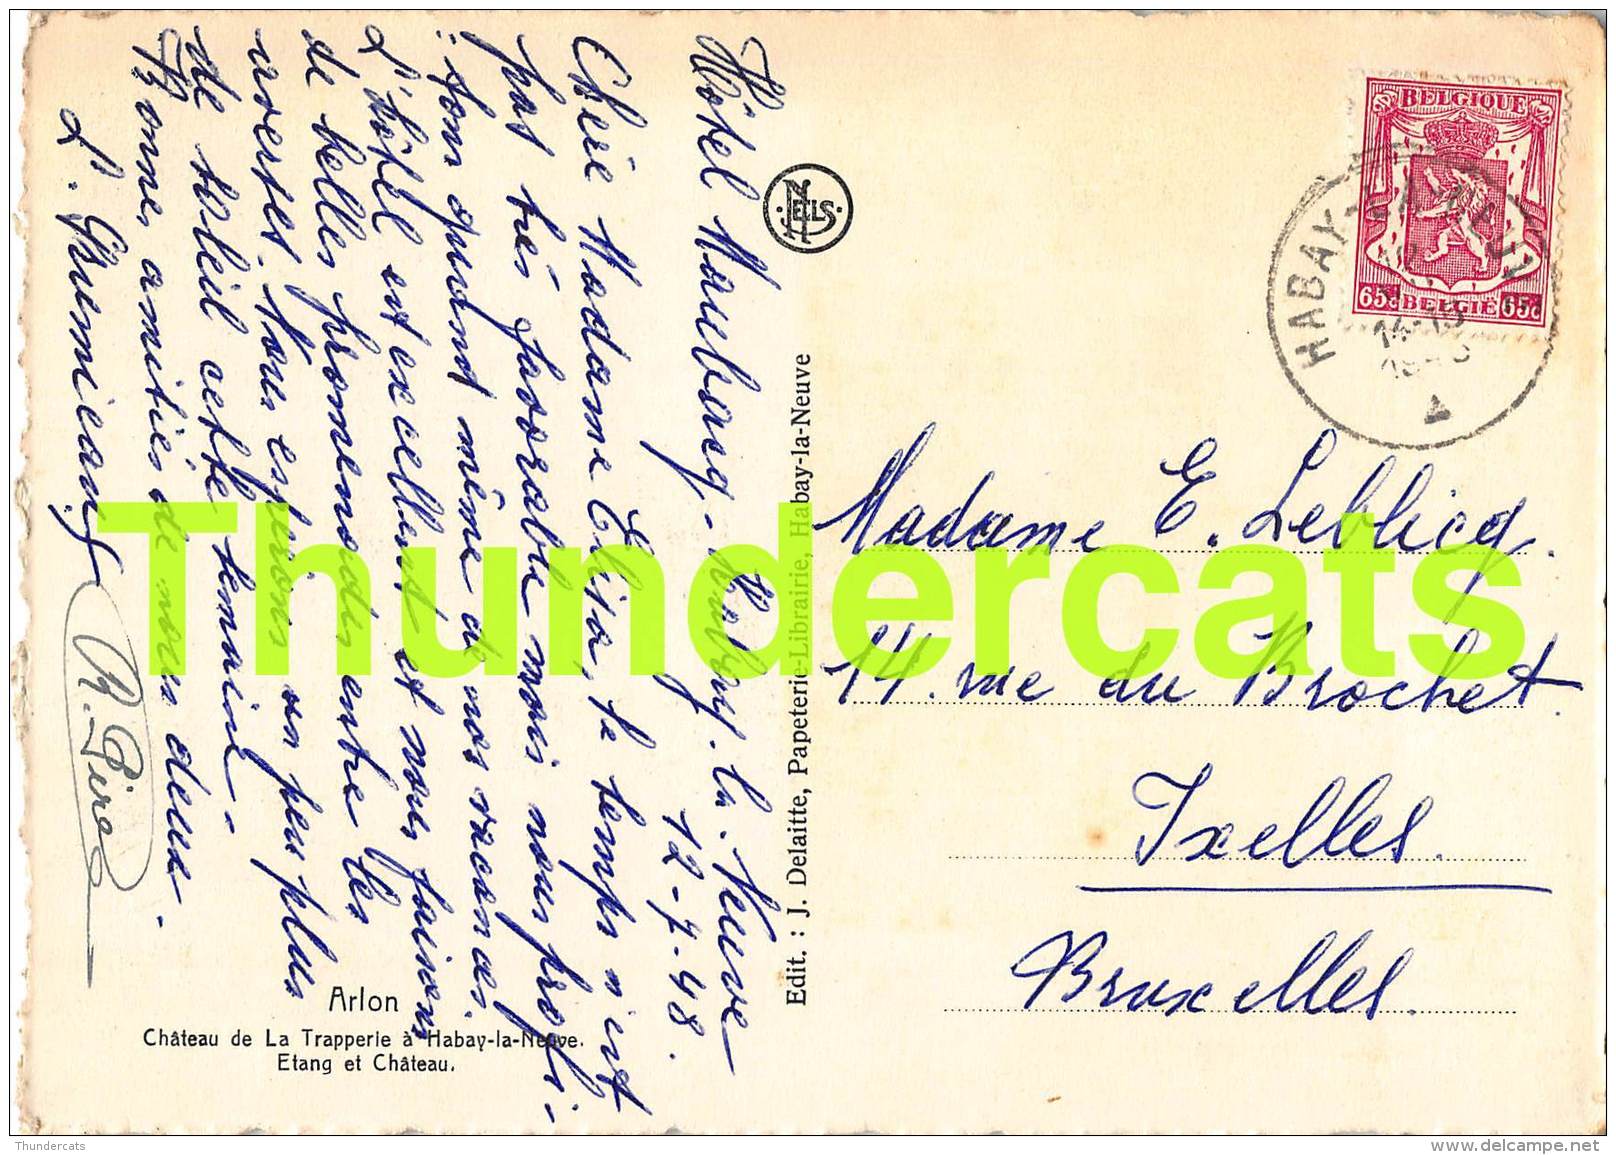 Hôtel Maubacq - Habay-la-Neuve
12-7-48.
Chère Madame Elisa, le temps n'est
pas très favorable mais nous profi-
tons quand même de nos vacances.
L'hôtel est excellent et nous faisons
de belles promenades entre les
averses. Nous espérons un peu plus
de soleil cette semaine.
Bonnes amitiés de nous deux.
L.
Edit. : J. Delaitte, Papeterie-Librairie, Habay-la-Neuve
NELS
BELGIQUE
65c BELGIE 65c
HABAY-LA-NEUVE
12
14-15
1948
Madame E. Leblicq.
14. rue du Brochet.
Ixelles.
Bruxelles.
Arlon
Château de La Trapperie à Habay-la-Neuve.
Etang et Château.
Thundercats
Thundercats
www.delcampe.net